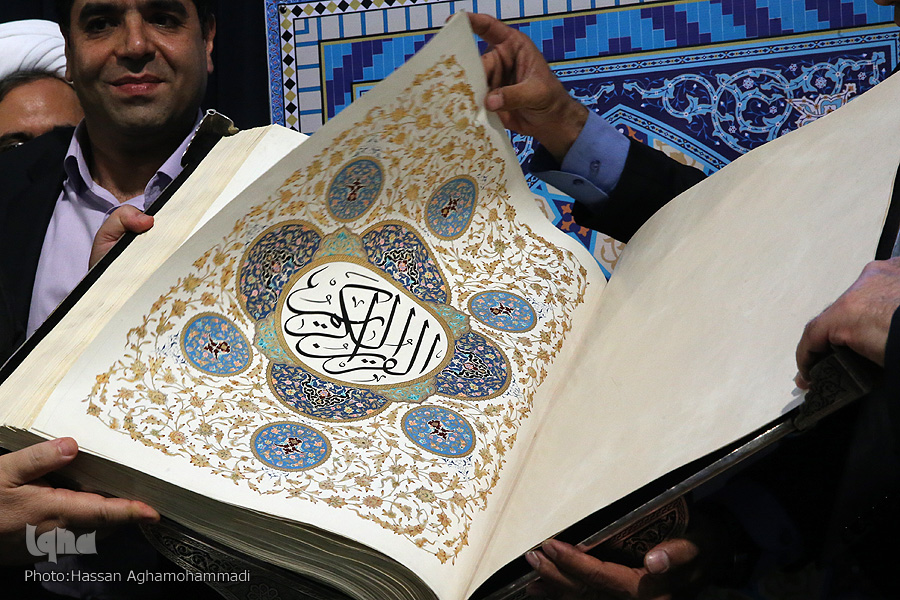 القرآن الكريم
iqna
Photo:Hassan Aghamohammadi